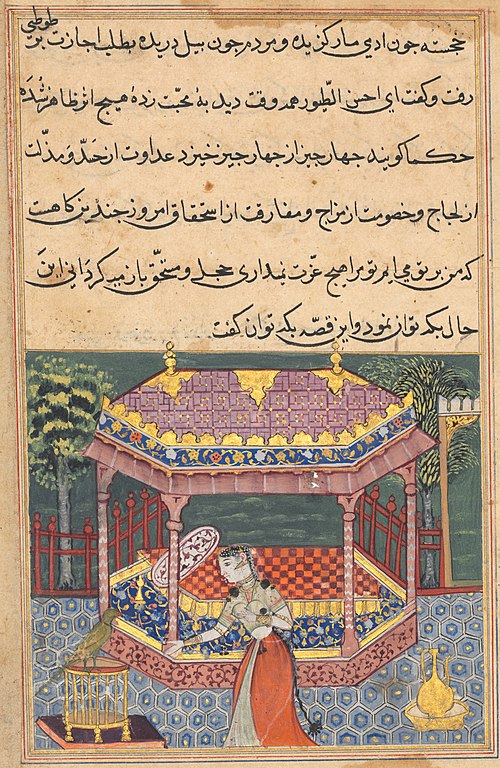 طوطی
خجسته چون ادی مارکزیده و مردم چون بیل دریده بطلب اجازت بر
رفت و کفت ای احسن الطیور همه وقت دید بهٔ محبت زدهٔ هیچ اثر ظاهر نشده
حکما کویند چهار چیز از چهار چیز خیزد عداوت از حدّ و مذلت
از لجاج و خصومت از مزاح و مفارقت از استحقاق امروز چندین کاهست
که من بر تو می ایم تو مرا هیچ عزت نمداری خجل و مستحق باز میکردانی این
حال بکه توان نمود و این قصّه بکه توان کفت